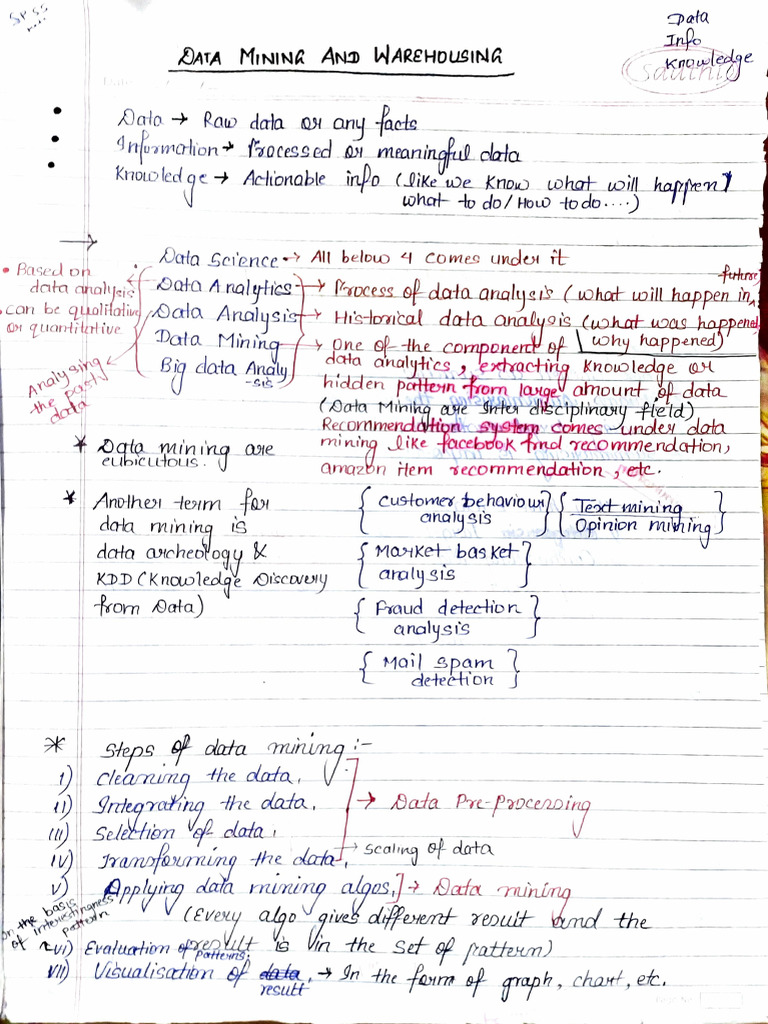 SPSS
Data
Info
Knowledge
DATA MINING AND WAREHOUSING
Data → Raw data or any facts
Information → Processed or meaningful data
Knowledge → Actionable info (like we know what will happen
what to do / How to do....)
Data Science → All below 4 comes under it
• Based on data analysis
• can be qualitative or quantitative
Analysing the past data
Data Analytics → Process of data analysis (what will happen in future
Data Analysis → Historical data analysis (what was happened
why happened)
Data Mining → One of the component of
data analytics, extracting knowledge or
hidden pattern from large amount of data
(Data Mining are Inter disciplinary field)
Big data Analysis
Recommendation system comes under data
mining like facebook find recommendation,
amazon item recommendation, etc.
* Data mining are
eubicutous.
* Another term for
data mining is
data archeology &
KDD (Knowledge Discovery
from Data)
{ Customer behaviour analysis }
{ Text mining
Opinion mining }
{ Market basket
analysis }
{ Fraud detection
analysis }
{ Mail spam
detection }
* Steps of data mining :-
I) Cleaning the data,
II) Integrating the data, → Data Pre-Processing
III) Selection of data,
IV) Transforming the data, → scaling of data
V) Applying data mining algos, ] → Data mining
(Every algo gives different result and the
result is in the set of pattern)
on the basis
of interestingness
pattern
VI) Evaluation of patterns.
VII) Visualisation of data result → In the form of graph, chart, etc.